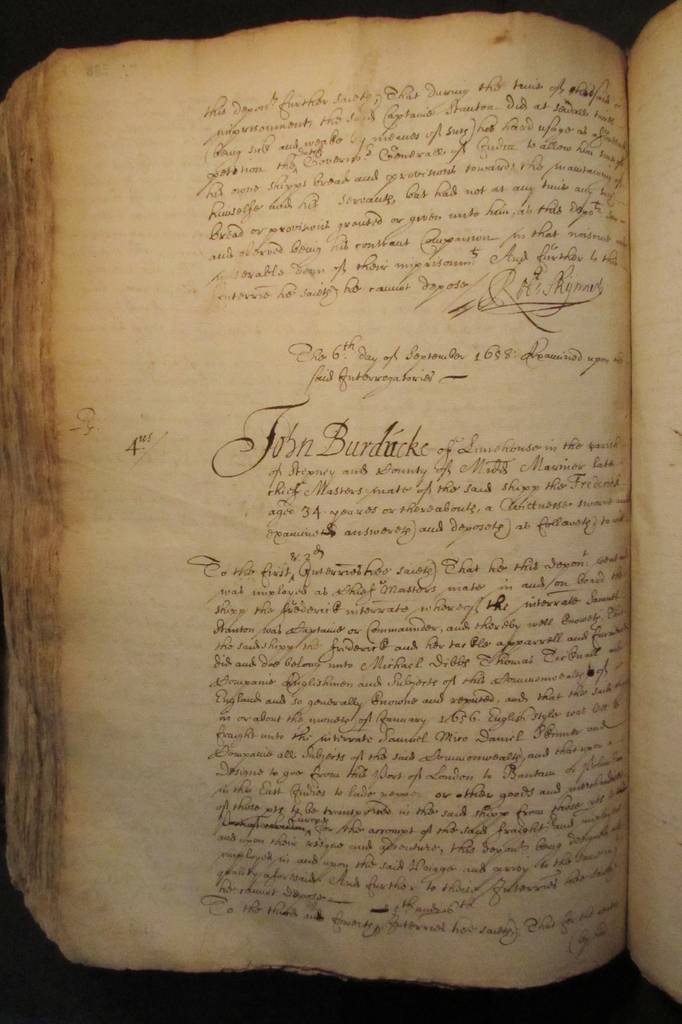 this depont further saieth, That during the time of their said
imprisonment the said Captaine Stanton did at severall times
(being sick and weake by meanes of such hard usage as aforesaid)
petition the Dutch Governor Generall of India to allow him some of
his owne shipps bread and provisions towards the maintaining of
himselfe and his servants, but had not at any time any such
bread or provisions graunted or given unto him, as this depont
and observed being his constant Companion in that noisome and
miserable den of their imprisonmt And further to this
Interrie he saieth he cannot depose /
Robt: Skynner
The 6th day of September 1658: Examined upon the
said Interrogatories
4us /
John Burducke of Limehouse in the parish
of Stepney and County of Middx Mariner late
chief Masters mate of the said shipp the Frederick
aged 34 yeares or thereabouts, a Witnesse sworne and
examined answereth and deposeth as followeth to witt
To the first, & 2d Interries hee saieth That he this depont went and
was imployed as chief Masters mate in and on board the
shipp the Frederick interrate whereof the interrate Samuel
Stanton was Captaine or Commander, and thereby well knoweth That
the said shipp the Frederick and her tackle apparrell and furniture
did and doe belong unto Michael Dibbs Thomas and
Companie Englishmen and Subjects of this Commonwealth of
England and so generally knowne and reputed, and that the said shipp
in or about the moneth of January 1656 English style was let to
fraight unto the interrate Samuel Mico Daniel Skinner and
Companie all Subjects of the said Commonwealth, and that upon a
designe to goe from this Port of London to Bantam
in the East Indies to lade pepper or other goods and merchandizes
of those pts to be transported in the said shipp from those pts to
Europe for the accompt of the said fraighters and imployers
and upon their risque and adventure, this depont being designed and
employed in and upon the said Voiage and privy to the
quality aforesaid. And further to these Interries hee saieth
he cannot depose
To the third and fourth, 5th and 6th Interries hee saieth, That for the